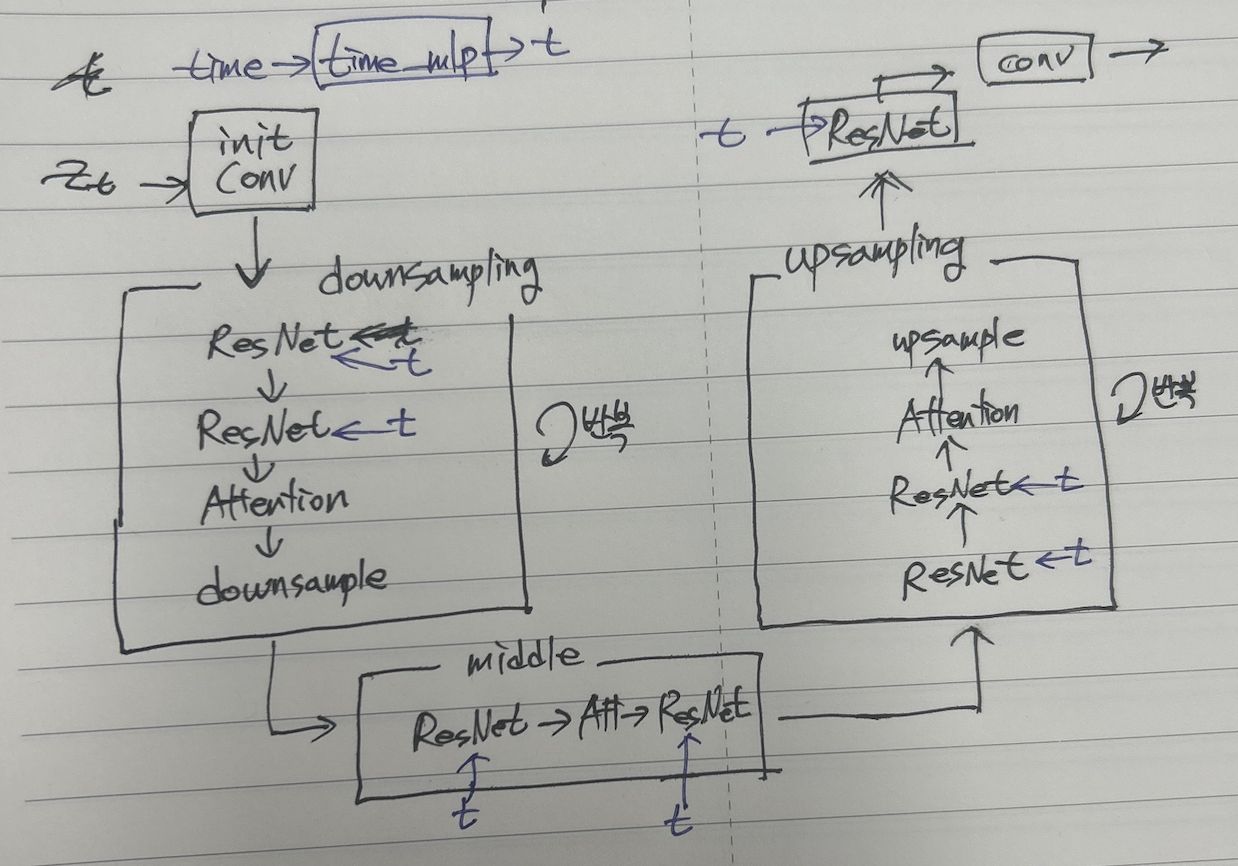 time → time_mlp → t
z_t → init conv
downsampling
ResNet ← t
ResNet ← t
Attention
downsample
반복
middle
ResNet → Att → ResNet
t t
upsampling
upsample
Attention
ResNet ← t
ResNet ← t
반복
t → ResNet
conv →